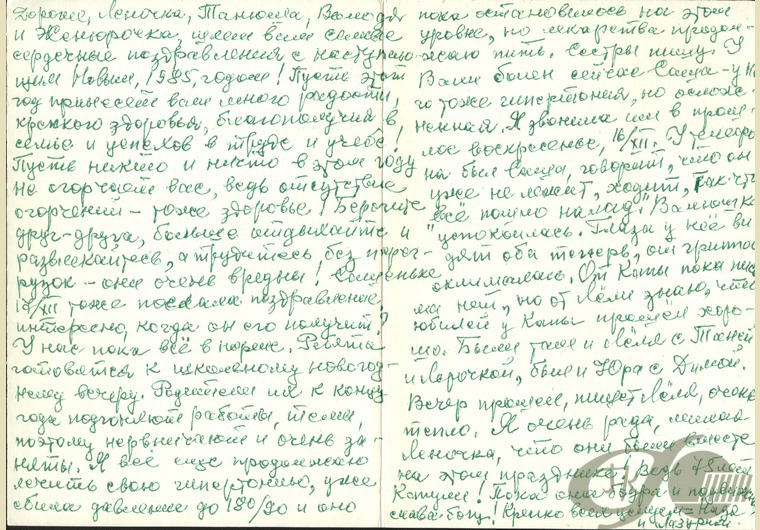 Дорогие, Леночка, Танюша, Володя
и Женюрочка, шлем вам самые
сердечные поздравления с наступаю-
щим Новым, 1985, годом! Пусть этот
год принесет вам много радости,
крепкого здоровья, благополучия в
семье и успехов в труде и учебе!
Пусть никто и ничто в этом году
не огорчает вас, ведь отсутствие
огорчений - тоже здоровье! Берегите
друг-друга, больше отдыхайте и
развлекайтесь, а трудитесь без перег-
рузок - они очень вредны! Сашеньке
17/XII тоже послала поздравление,
интересно, когда он его получит?
У нас пока всё в норме. Ребята
готовятся к школьному новогод-
нему вечеру. Родители их к концу
года подгоняют работы, темы,
поэтому нервничают и очень за-
няты. Я всё еще продолжаю
лечить свою гипертонию, уже
сбила давление до 180/90 и оно
пока остановилось на этом
уровне, но лекарства продол-
жаю пить. Сестры пишут. У
Вали болен сейчас Саша - у не-
го тоже гипертония, но ослож-
ненная. Я звонила им в прош-
лое воскресенье, 16/XII. У телефо-
на был Саша, говорит, что он
уже не лежит, ходит, так что
"всё пошло на лад". Валюшка
успокоилась. Глаза у неё ви-
дят оба теперь, от гриппа
оклемалась. От Капы пока пись-
ма нет, но от Лёли знаю, что
юбилей у Капы прошел хоро-
шо. Были там и Лёля с Таней
и Лорочкой, был и Юра с Димой.
Вечер прошел, пишет Лёля, очень
тепло. Я очень рада, милая
Леночка, что они были вместе
на этом празднике! Ведь 75 лет
Капуле! Пока она бодра и
слава богу! Крепко всех целуем - Надя
и